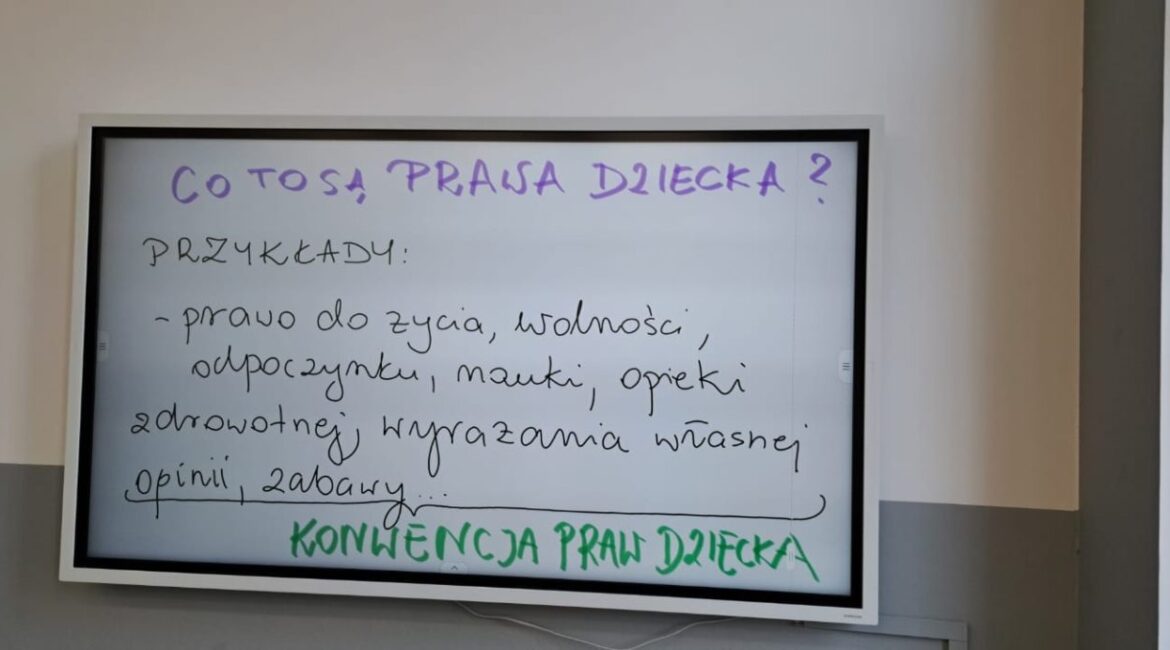 CO TO SĄ PRAWA DZIECKA?
PRZYKŁADY:
- prawo do życia, wolności,
odpoczynku, nauki, opieki
zdrowotnej, wyrazania własnej
opinii, zabawy...
KONWENCJA PRAW DZIECKA